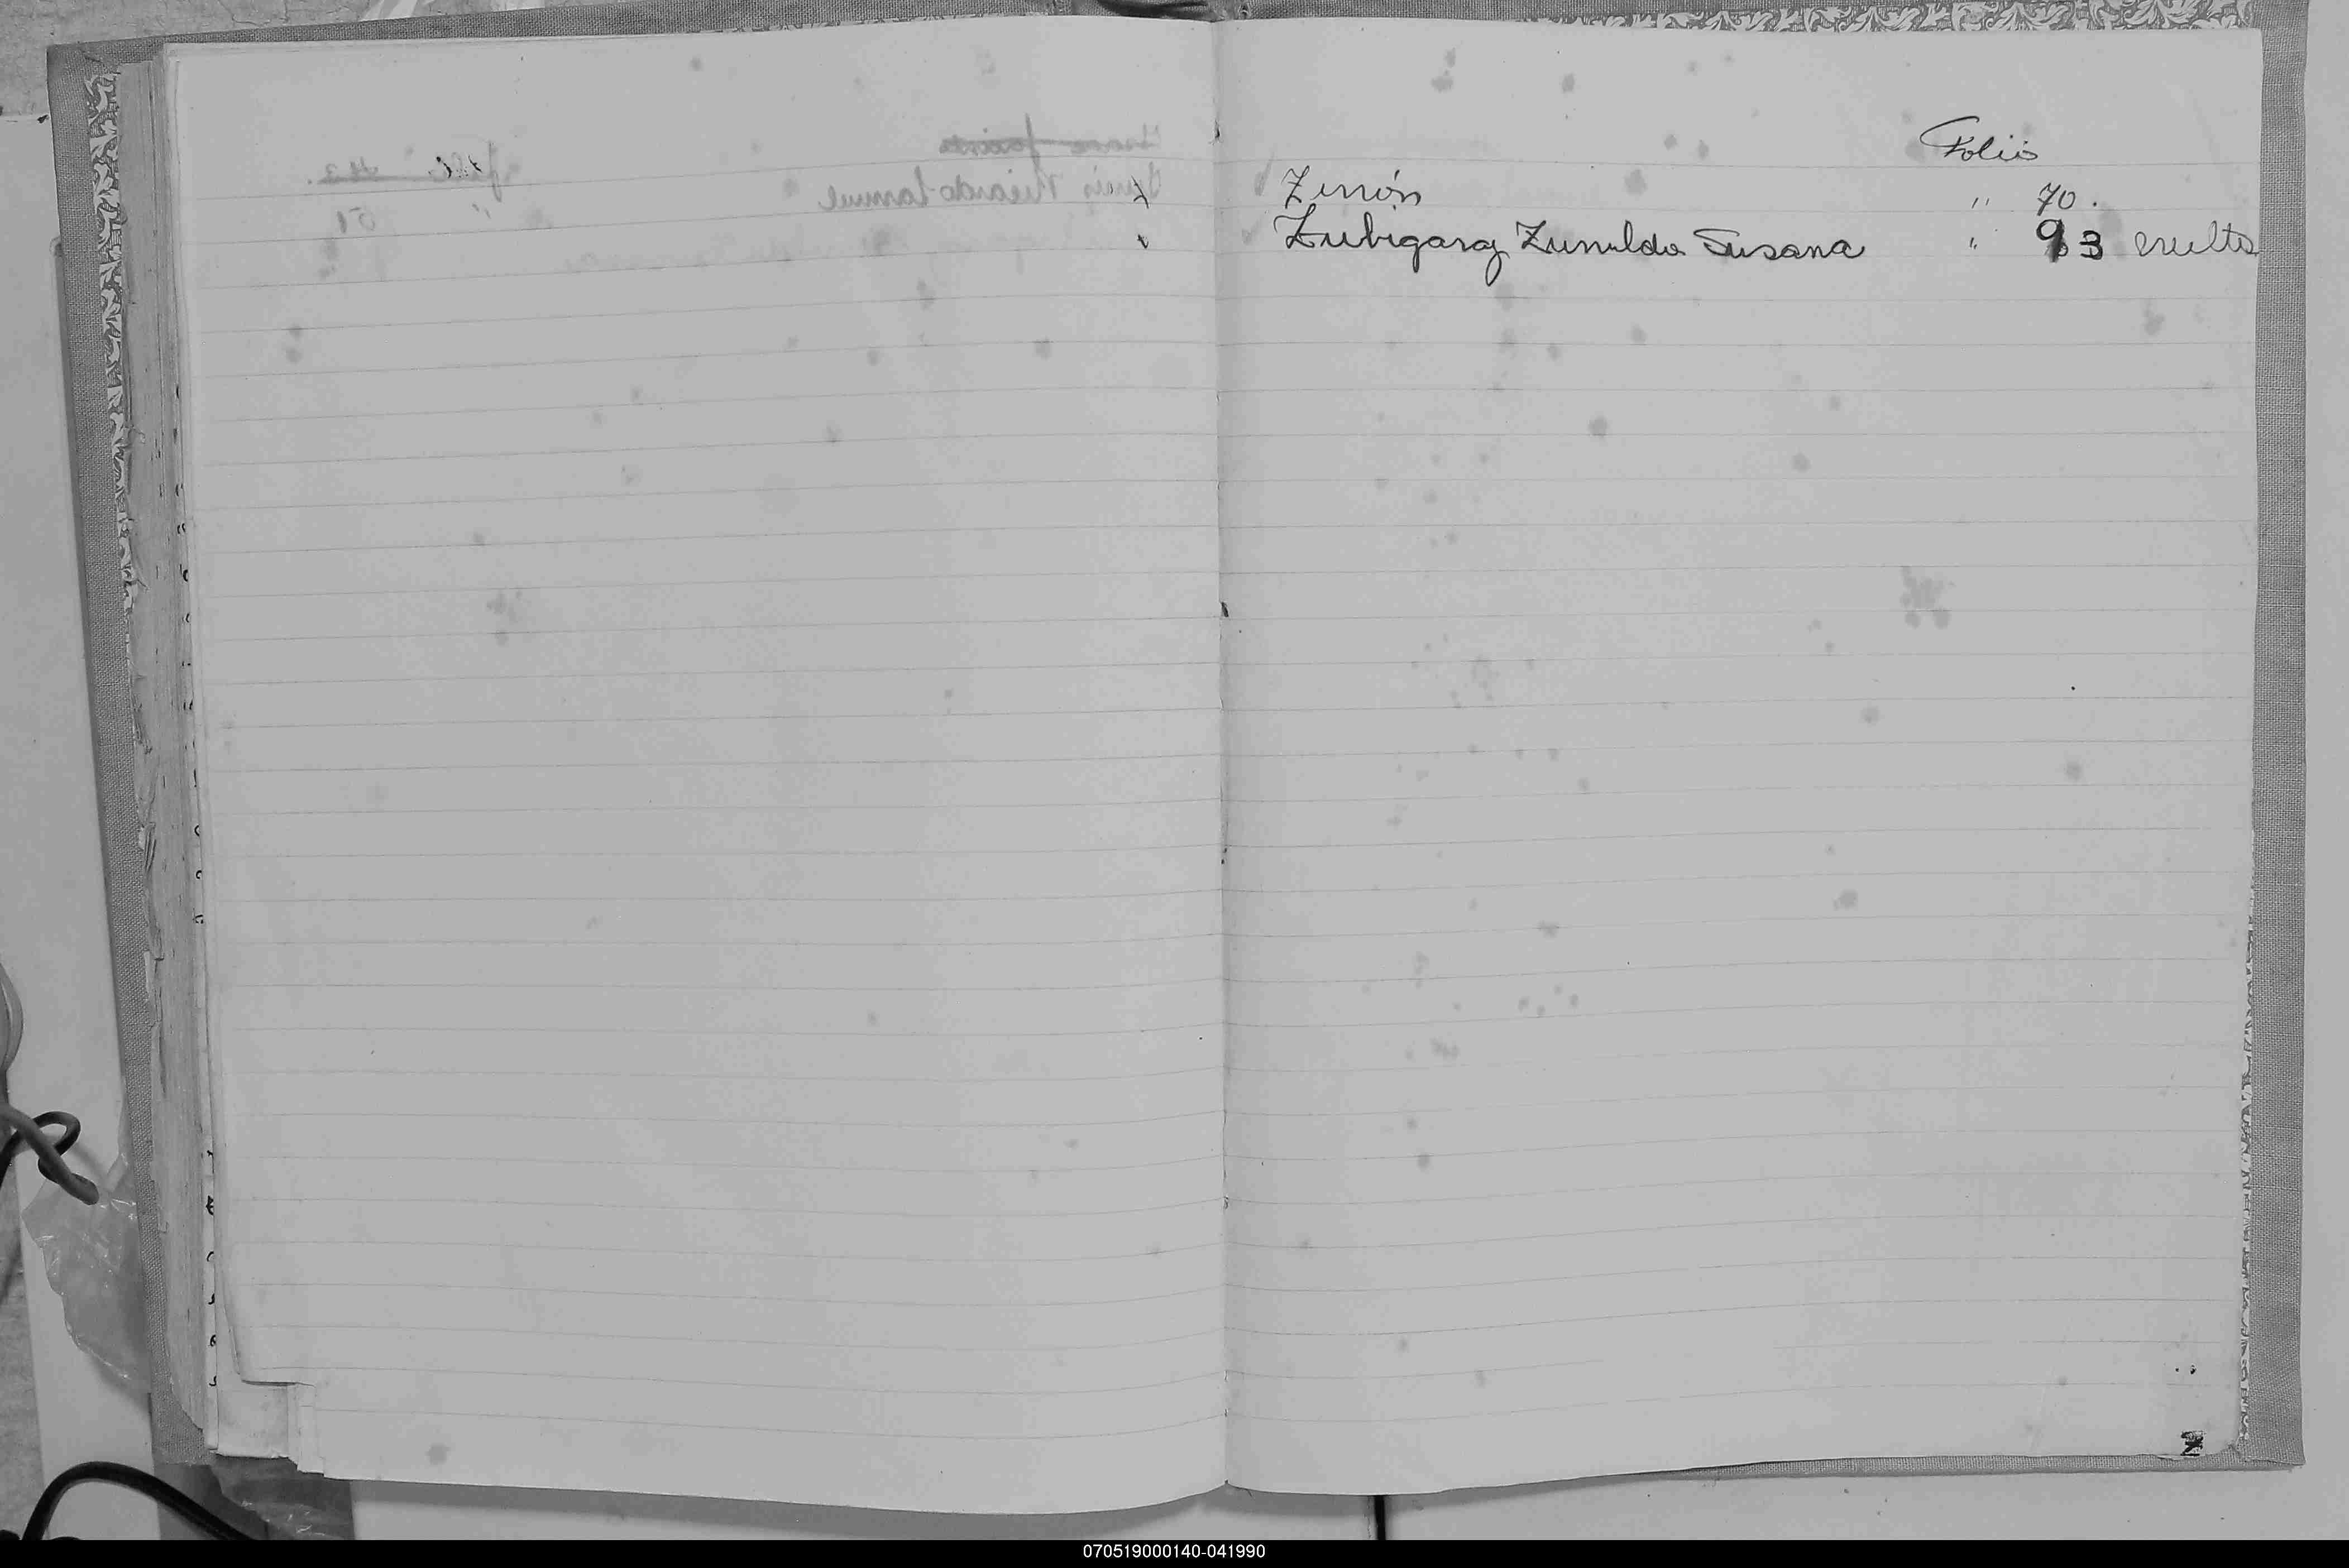 Folio
Zenón " 70.
Zubigaray Zunilda Susana " 93 vuelta
Z
070519000140-041990